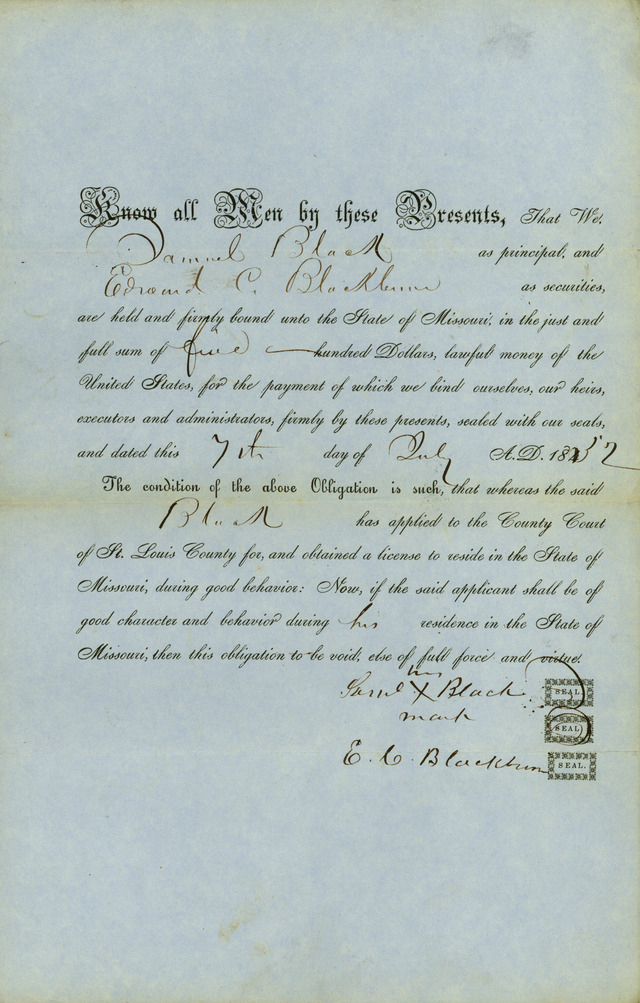 Know all Men by these Presents, That We,
Samuel Black as principal, and
Edward C. Blackburn as securities,
are held and firmly bound unto the State of Missouri, in the just and
full sum of five hundred Dollars, lawful money of the
United States, for the payment of which we bind ourselves, our heirs,
executors and administrators, firmly by these presents, sealed with our seals,
and dated this 7th day of July A.D. 1852
The condition of the above Obligation is such, that whereas the said
Black has applied to the County Court
of St. Louis County for, and obtained a license to reside in the State of
Missouri, during good behavior: Now, if the said applicant shall be of
good character and behavior during his residence in the State of
Missouri, then this obligation to be void, else of full force and virtue.
his
Saml X Black SEAL
mark SEAL
E. C. Blackburn SEAL.